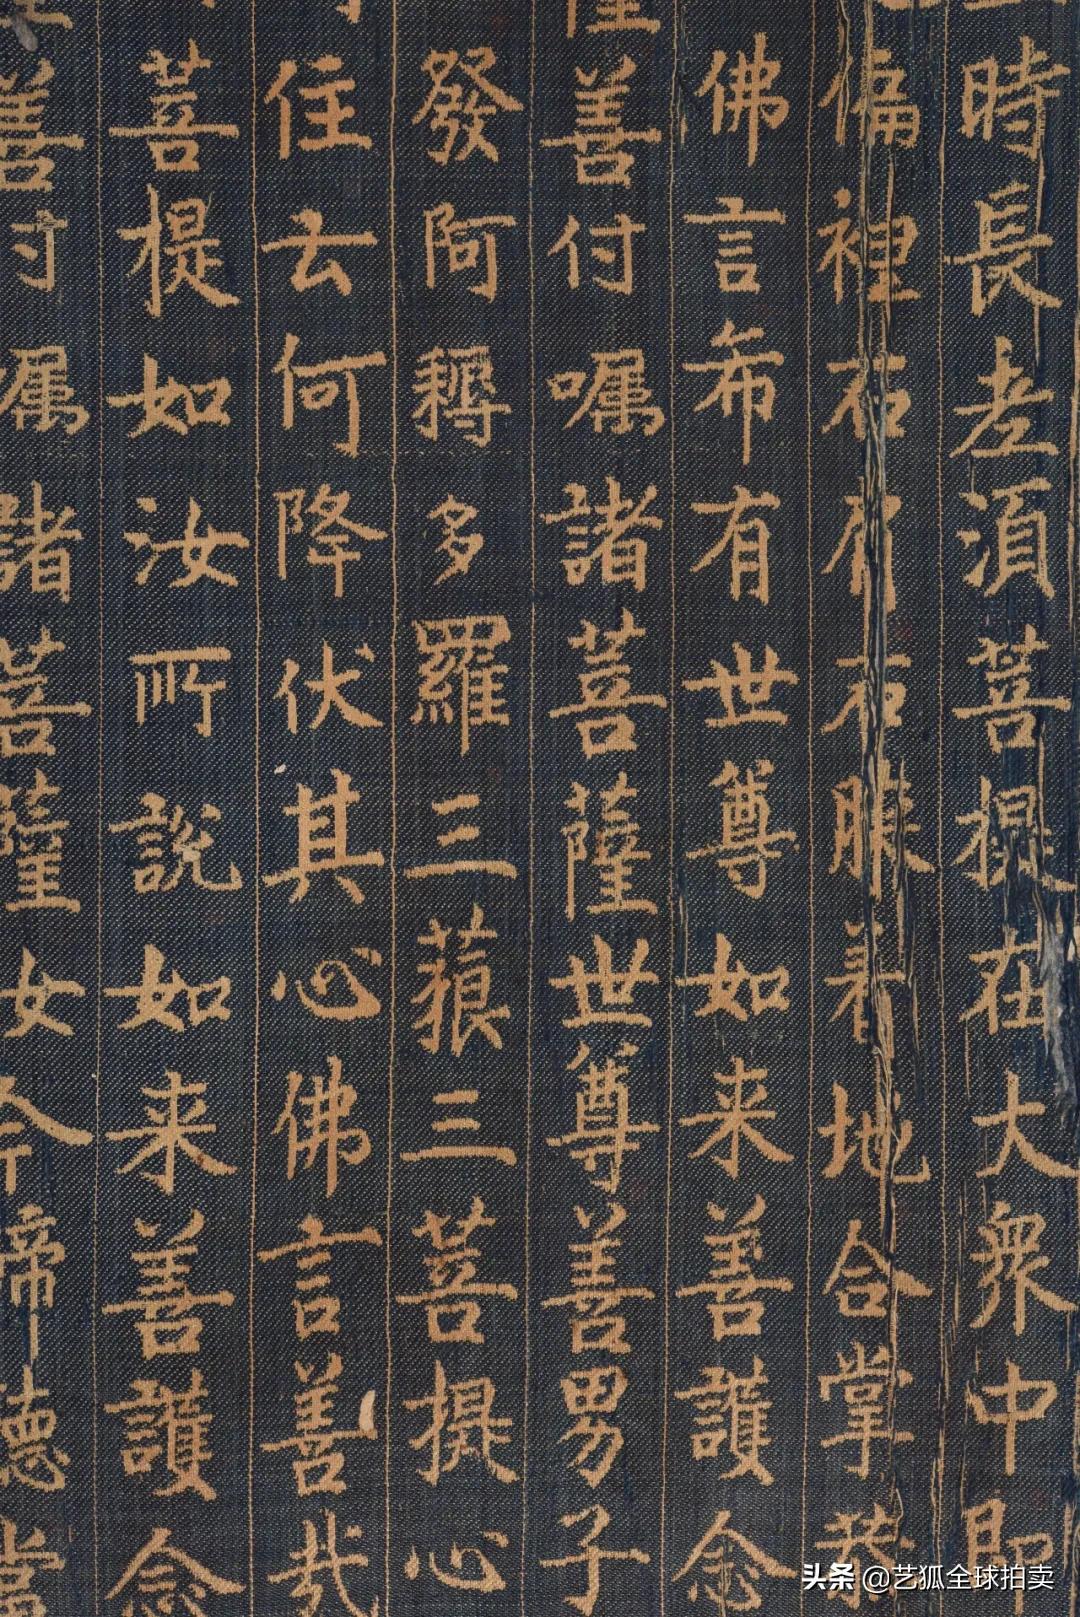 時長老須菩提在大衆中即
偏袒右肩右膝着地合掌恭
佛言希有世尊如来善護念
善付嘱諸菩薩世尊善男子
發阿耨多羅三藐三菩提心
住云何降伏其心佛言善哉
菩提如汝所説如来善護念
善付嘱諸菩薩汝今諦聽當
头条 @艺狐全球拍卖